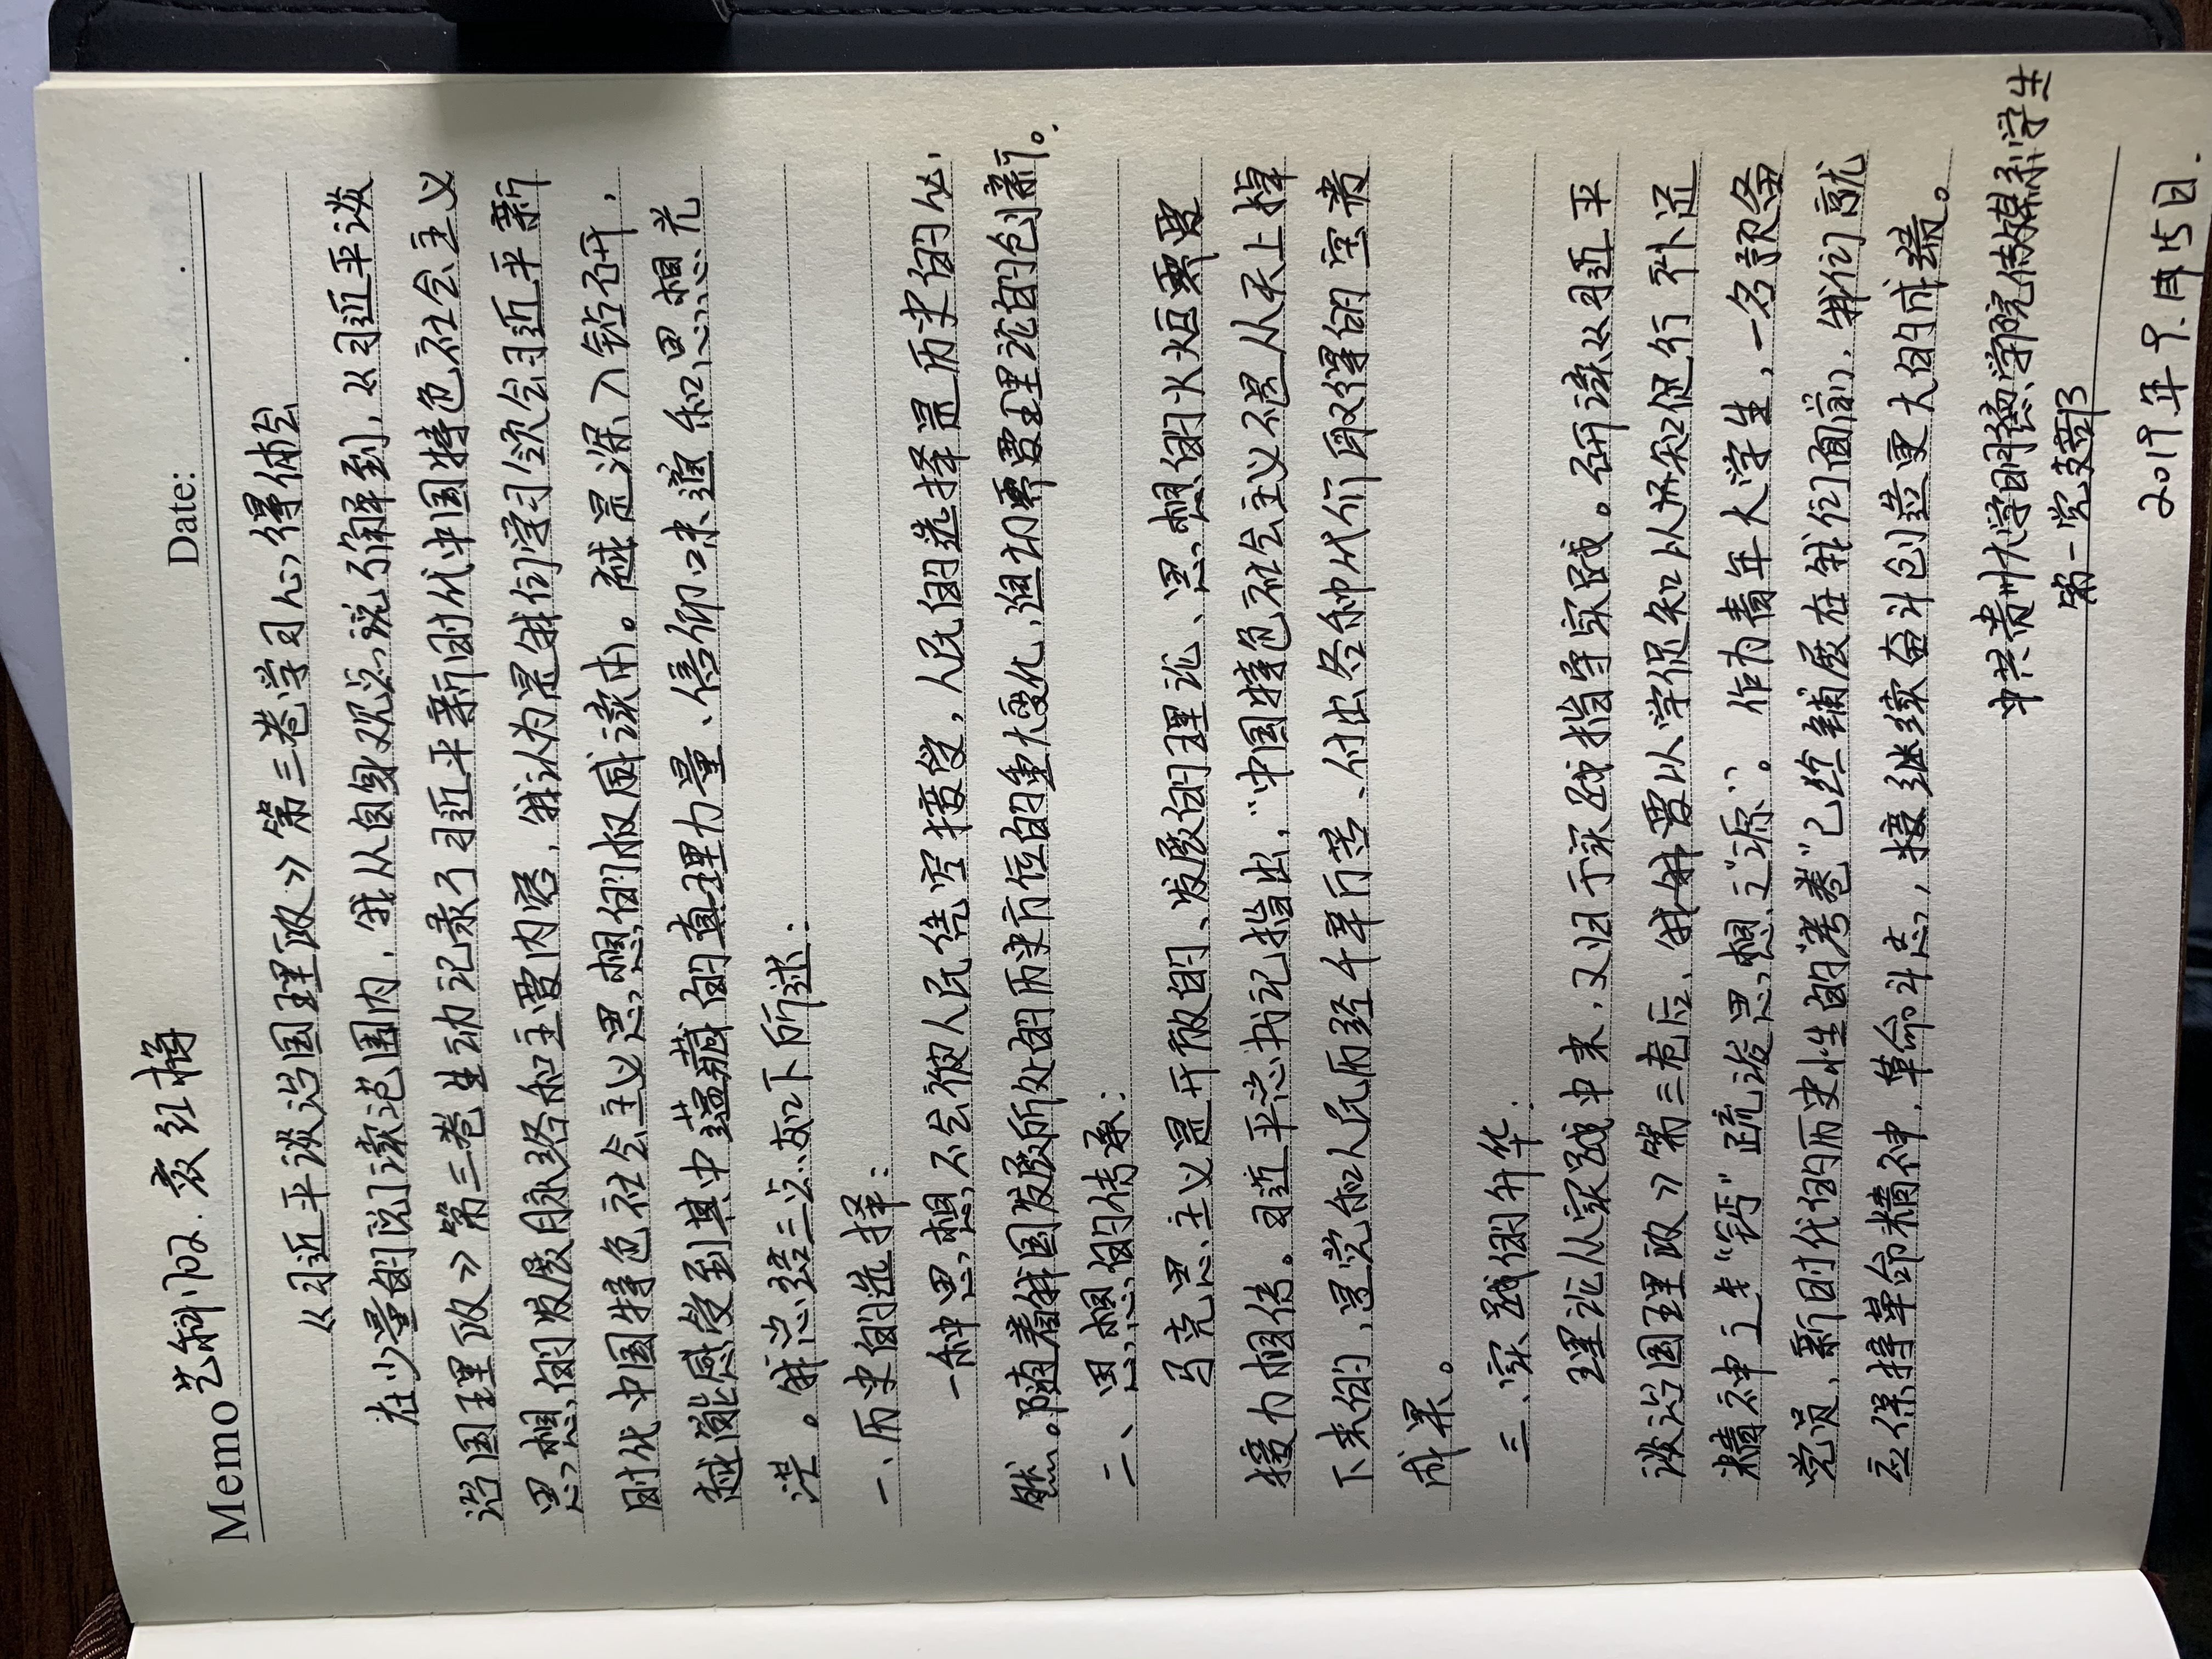 Memo 艺科门口.袁红梅
Date:
《习近平谈治国理政》第三卷学习心得体会
在少量的阅读范围内，我从自身观点说了解到，《习近平谈
治国理政》第三卷生动记录了习近平新时代中国特色社会主义
思想的发展脉络和主要内容，我认为是我们学习领会习近平新
时代中国特色社会主义思想的权威读本。越是深入钻研，
越能感受到其中蕴藏的真理力量、信仰味道和思想光
芒。我总结三点如下所述：
一、历史的选择：
一种思想不会被人民凭空接受，人民的选择是历史的必
然。随着我国发展所处的历史方位的重大变化，迫切需要理论的创新。
二、思想的传承：
马克思主义是开放的、发展的理论、思想的火炬需要
接力相传。习近平总书记指出，“中国特色社会主义不是从天上掉
下来的，是党和人民历经千辛万苦、付出各种代价取得的宝贵
成果。
三、实践的升华.
理论从实践中来，又归于实践指导实践。研读《习近平
谈治国理政》第三卷后，我要以学促知以知促行补足
精神之“钙”疏浚思想之“源”。作为青年大学生，一名预备
党员，新时代的历史性的“考卷”已经铺展在我们面前，我们就
应保持革命精神，革命斗志，接继续奋斗创造更大的成绩。
中共贵州大学明德学院传媒系学生
第一党支部
2019年9.月15日.